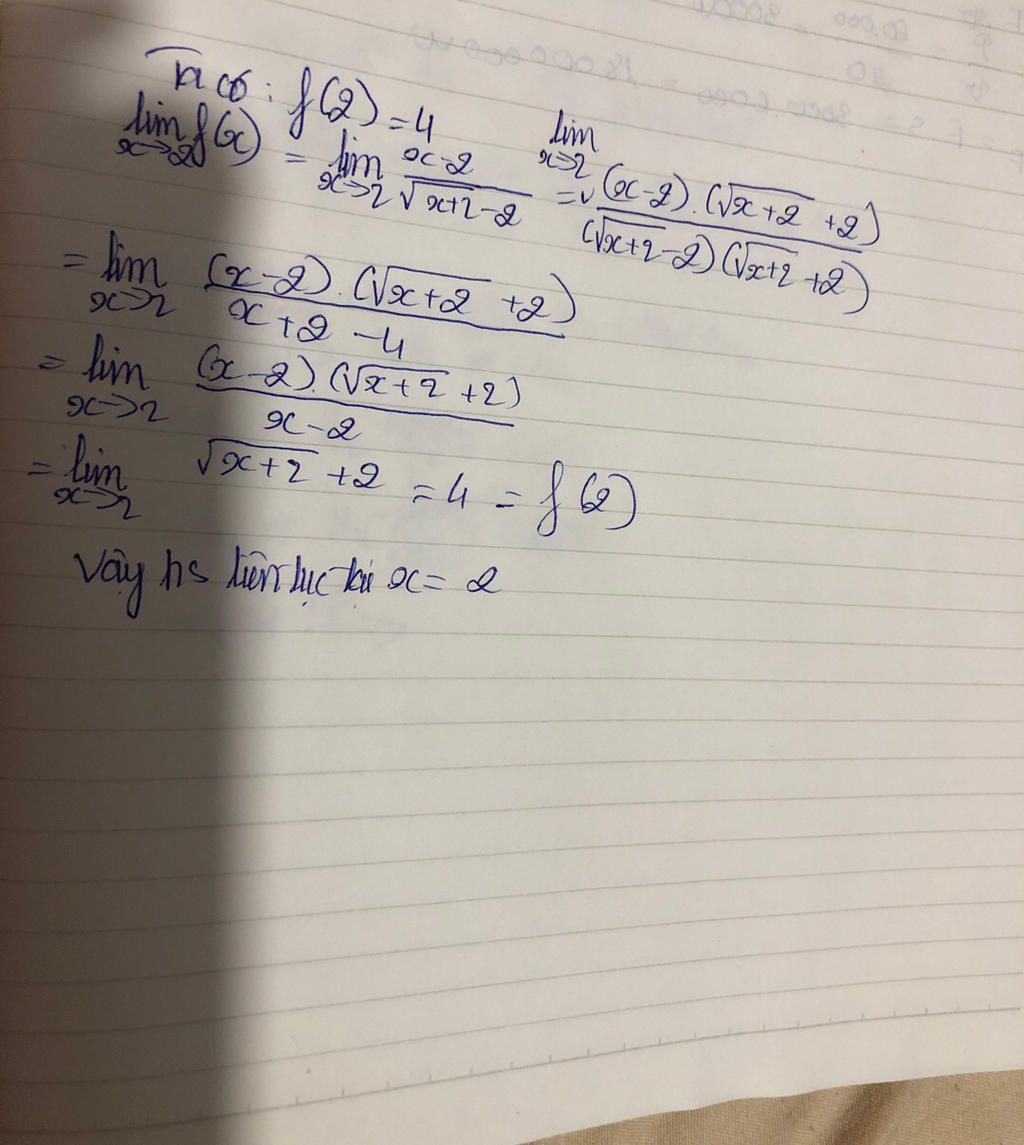 Ta có: f(2) = 4
lim x→2 f(x) = lim x→2 (x-2)/(√(x+2) - 2) = lim x→2 ((x-2).(√(x+2) +2))/((√(x+2) -2)(√(x+2) +2))
= lim x→2 ((x-2).(√(x+2) +2))/(x+2-4)
= lim x→2 ((x-2).(√(x+2) +2))/(x-2)
= lim x→2 √(x+2) +2 = 4 = f(2)
Vậy hs liên tục tại x = 2